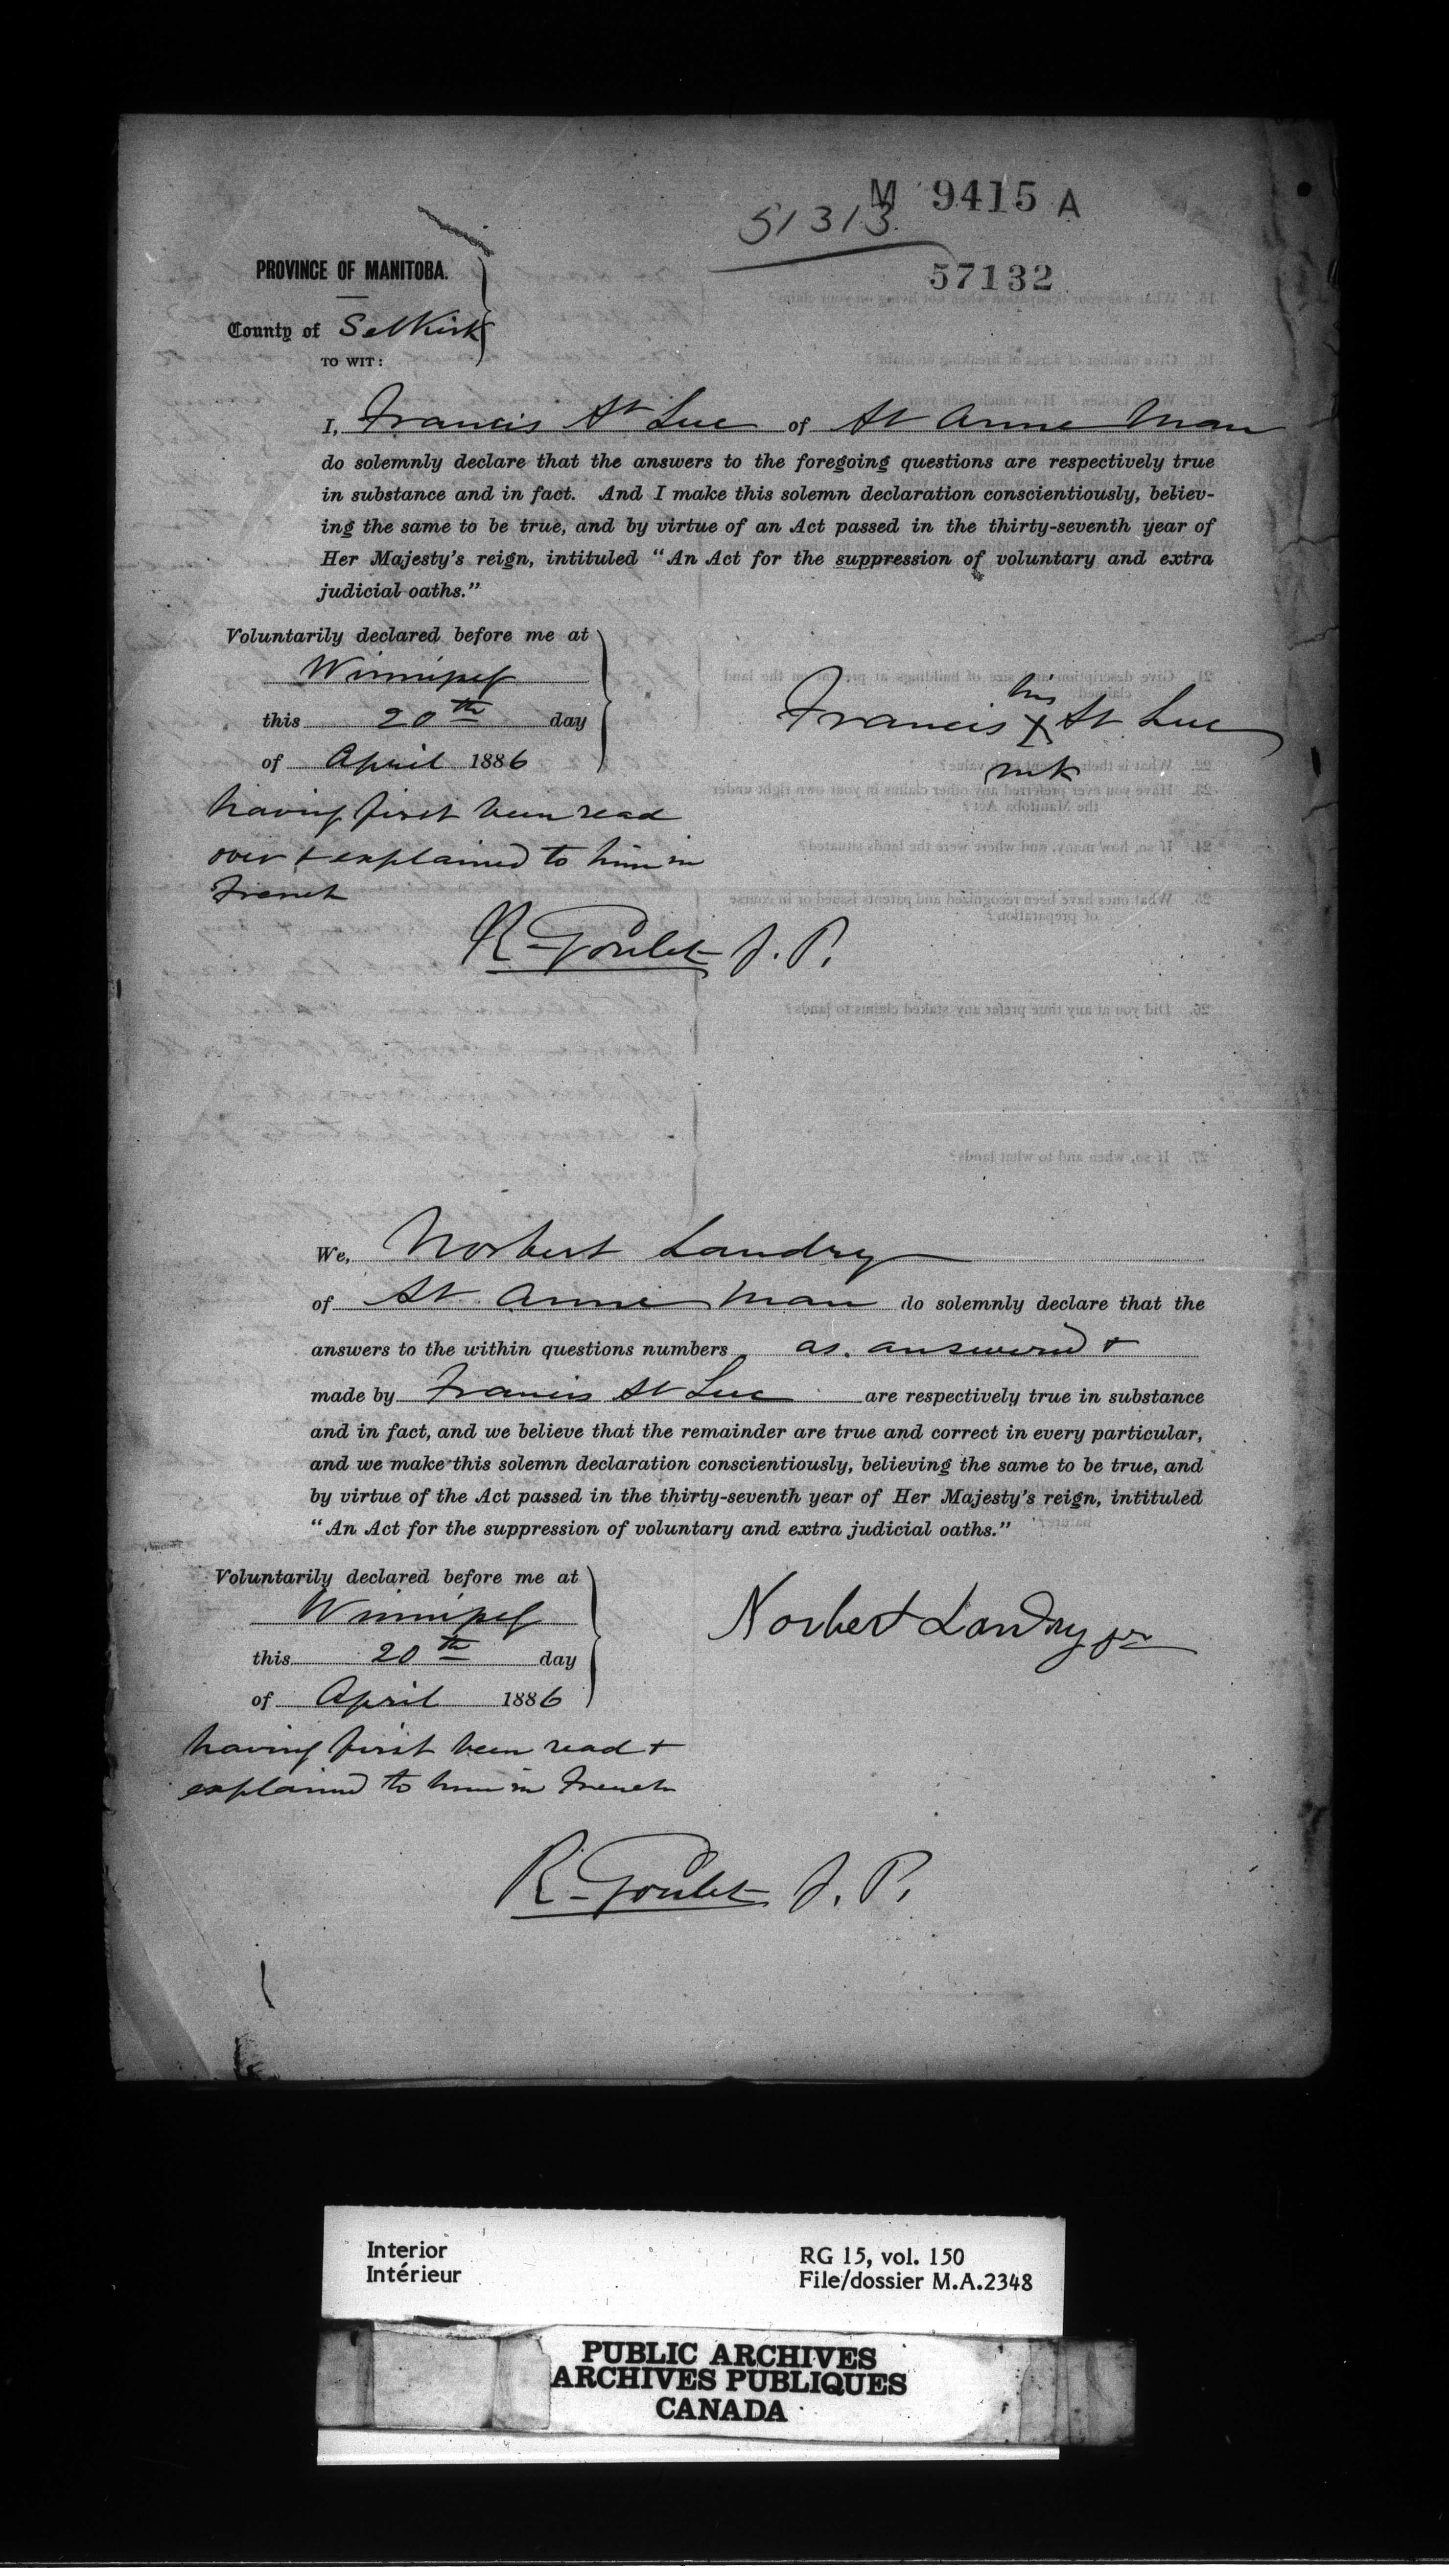 M 9415 A
51313
57132
PROVINCE OF MANITOBA.
County of Selkirk
TO WIT:
I, Francis St Luc of St Anne Man
do solemnly declare that the answers to the foregoing questions are respectively true
in substance and in fact. And I make this solemn declaration conscientiously, believ-
ing the same to be true, and by virtue of an Act passed in the thirty-seventh year of
Her Majesty's reign, intituled "An Act for the suppression of voluntary and extra
judicial oaths."
Voluntarily declared before me at
Winnipeg
this 20th day
of April 1886
his
Francis X St Luc
mk
having first been read
over & explained to him in
French
R Goulet J. P.
We, Norbert Landry
of St Anne Man do solemnly declare that the
answers to the within questions numbers as answered &
made by Francis St Luc are respectively true in substance
and in fact, and we believe that the remainder are true and correct in every particular,
and we make this solemn declaration conscientiously, believing the same to be true, and
by virtue of the Act passed in the thirty-seventh year of Her Majesty's reign, intituled
"An Act for the suppression of voluntary and extra judicial oaths."
Voluntarily declared before me at
Winnipeg
this 20th day
of April 1886
Norbert Landry jr
having first been read &
explained to him in French
R Goulet J. P.
Interior
Intérieur
RG 15, vol. 150
File/dossier M.A.2348
PUBLIC ARCHIVES
ARCHIVES PUBLIQUES
CANADA